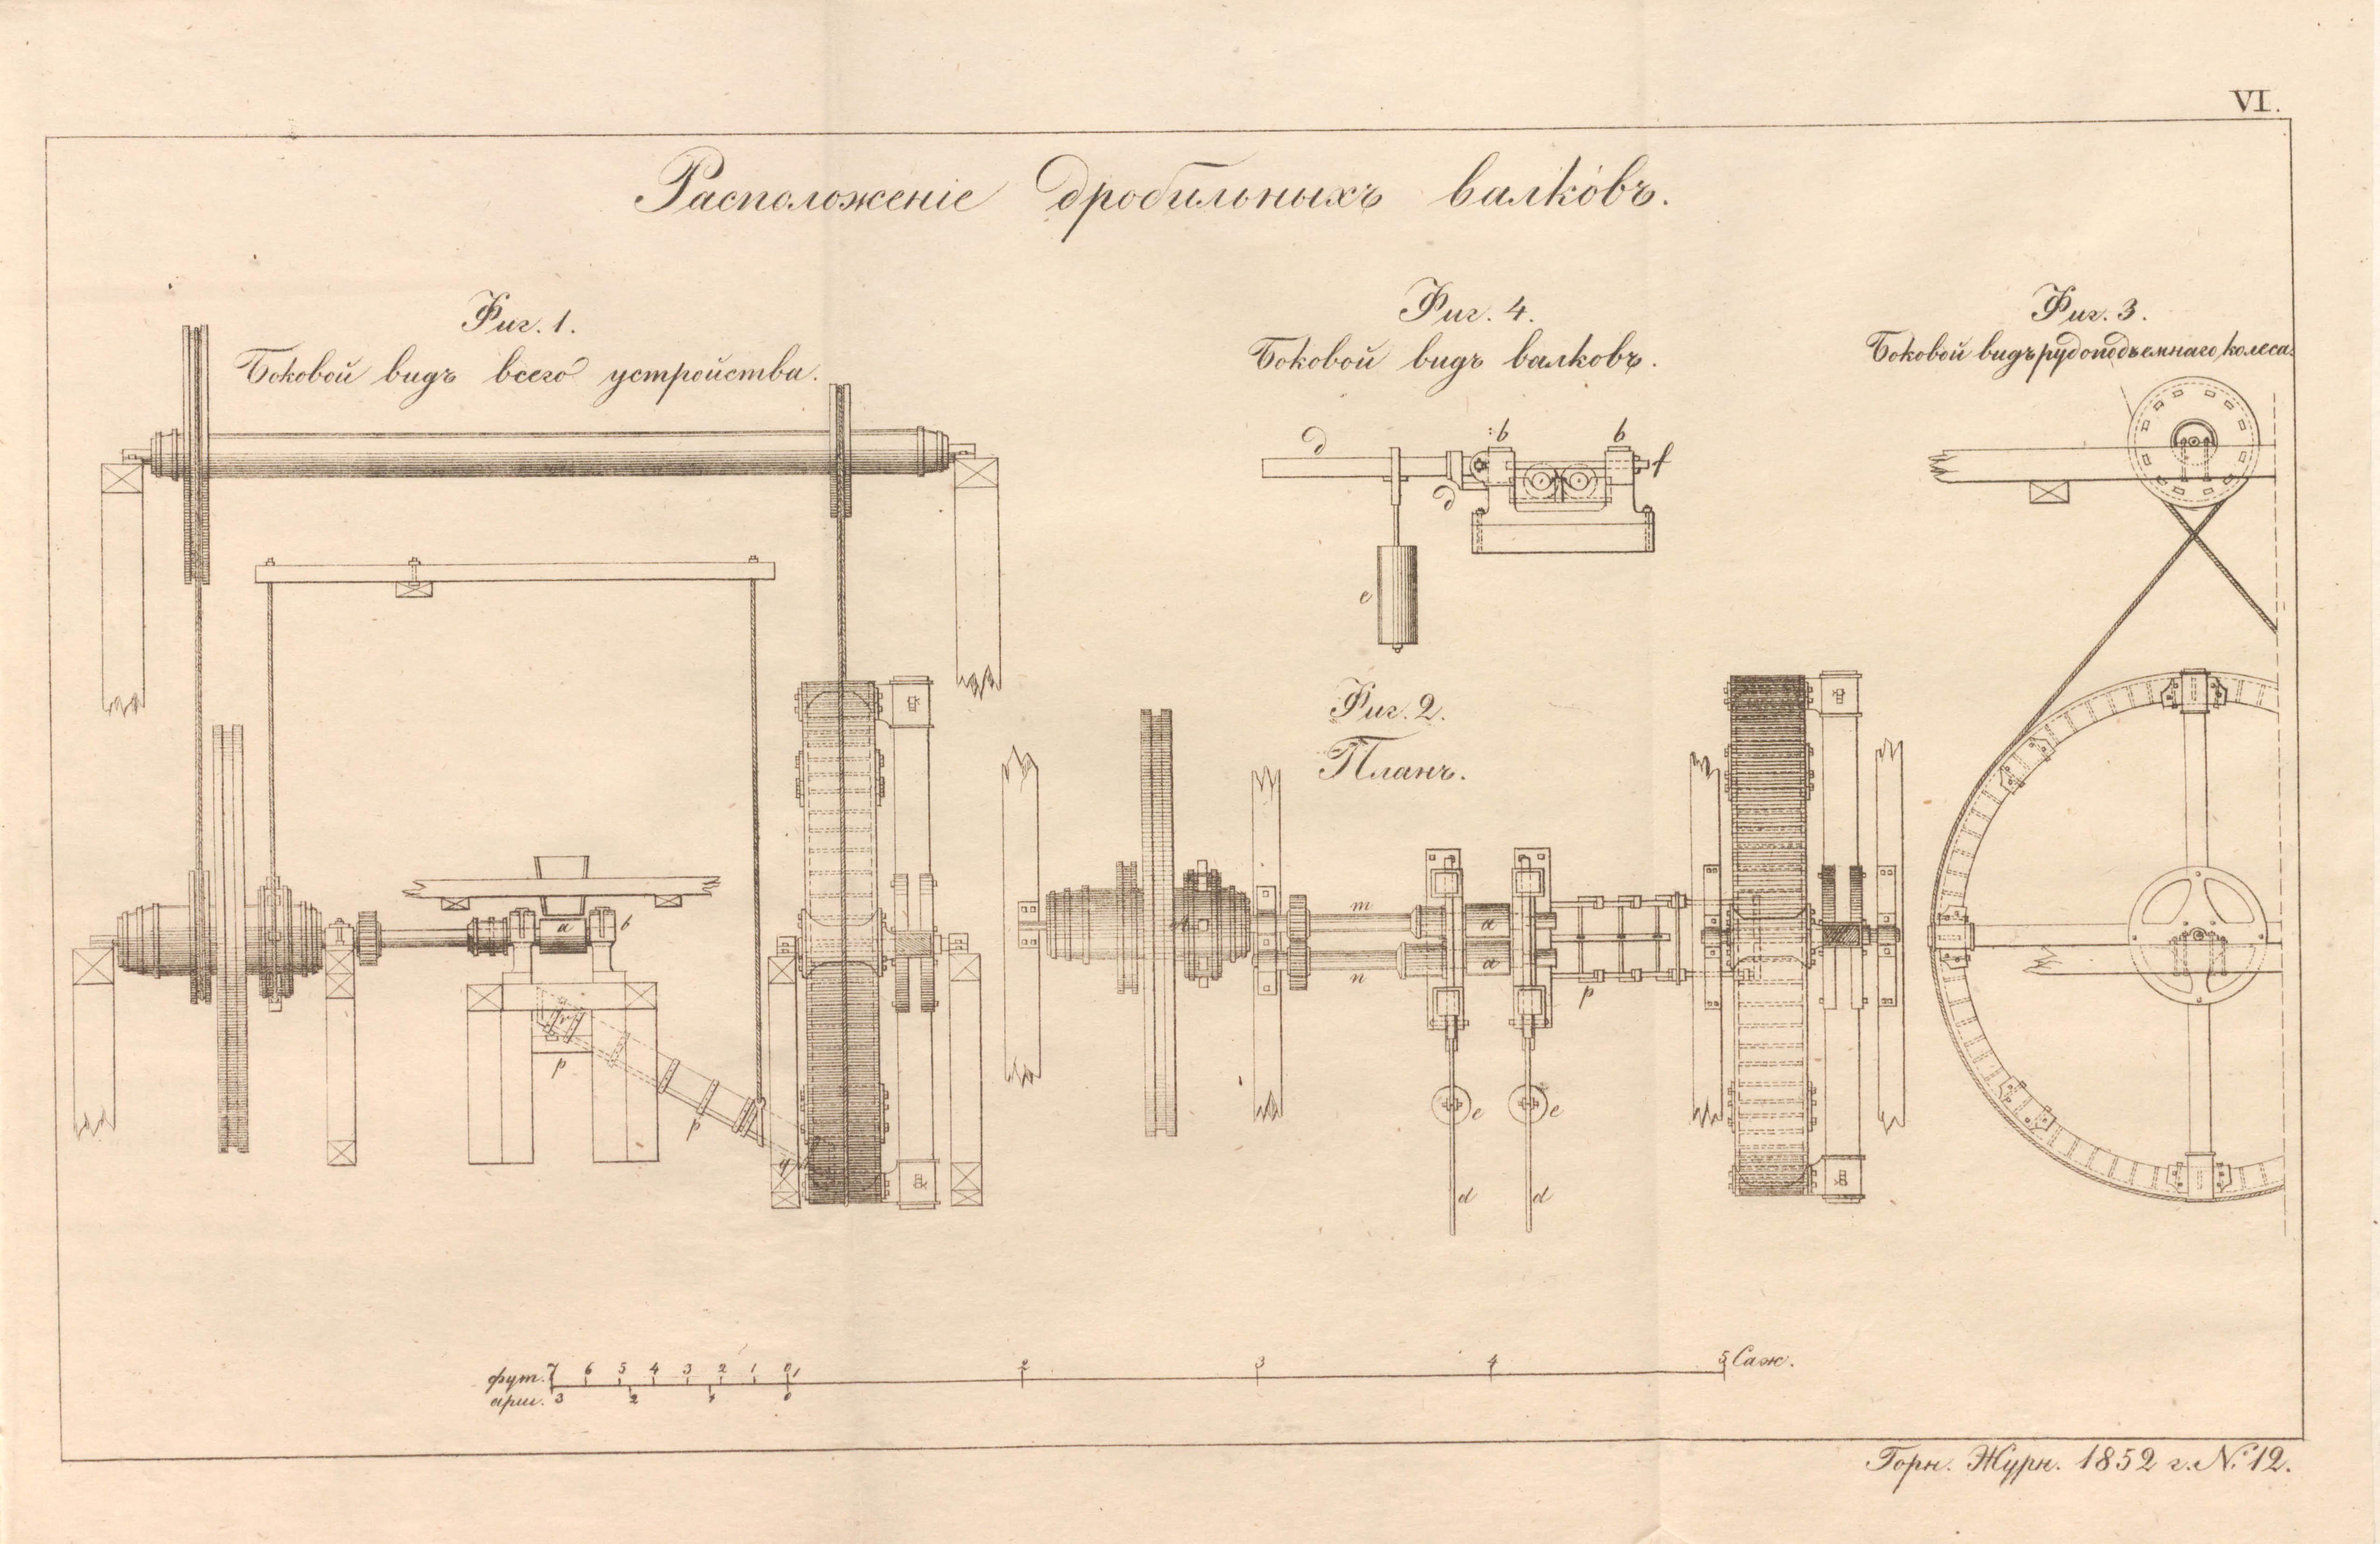 VI.
Расположеніе дробильныхъ валковъ.
Фиг. 1.
Боковой видъ всего устройства.
Фиг. 4.
Боковой видъ валковъ.
Фиг. 3.
Боковой видъ рудоподъемнаго колеса.
д
b b
f
д
e
Фиг. 2.
Планъ.
a b
p
p
q
A
m
n
a
a
p
e e
d d
фут. 7 6 5 4 3 2 1 0 1 2 3 4 5 Саж.
арш. 3 2 1 0
Горн. Журн. 1852 г. №. 12.